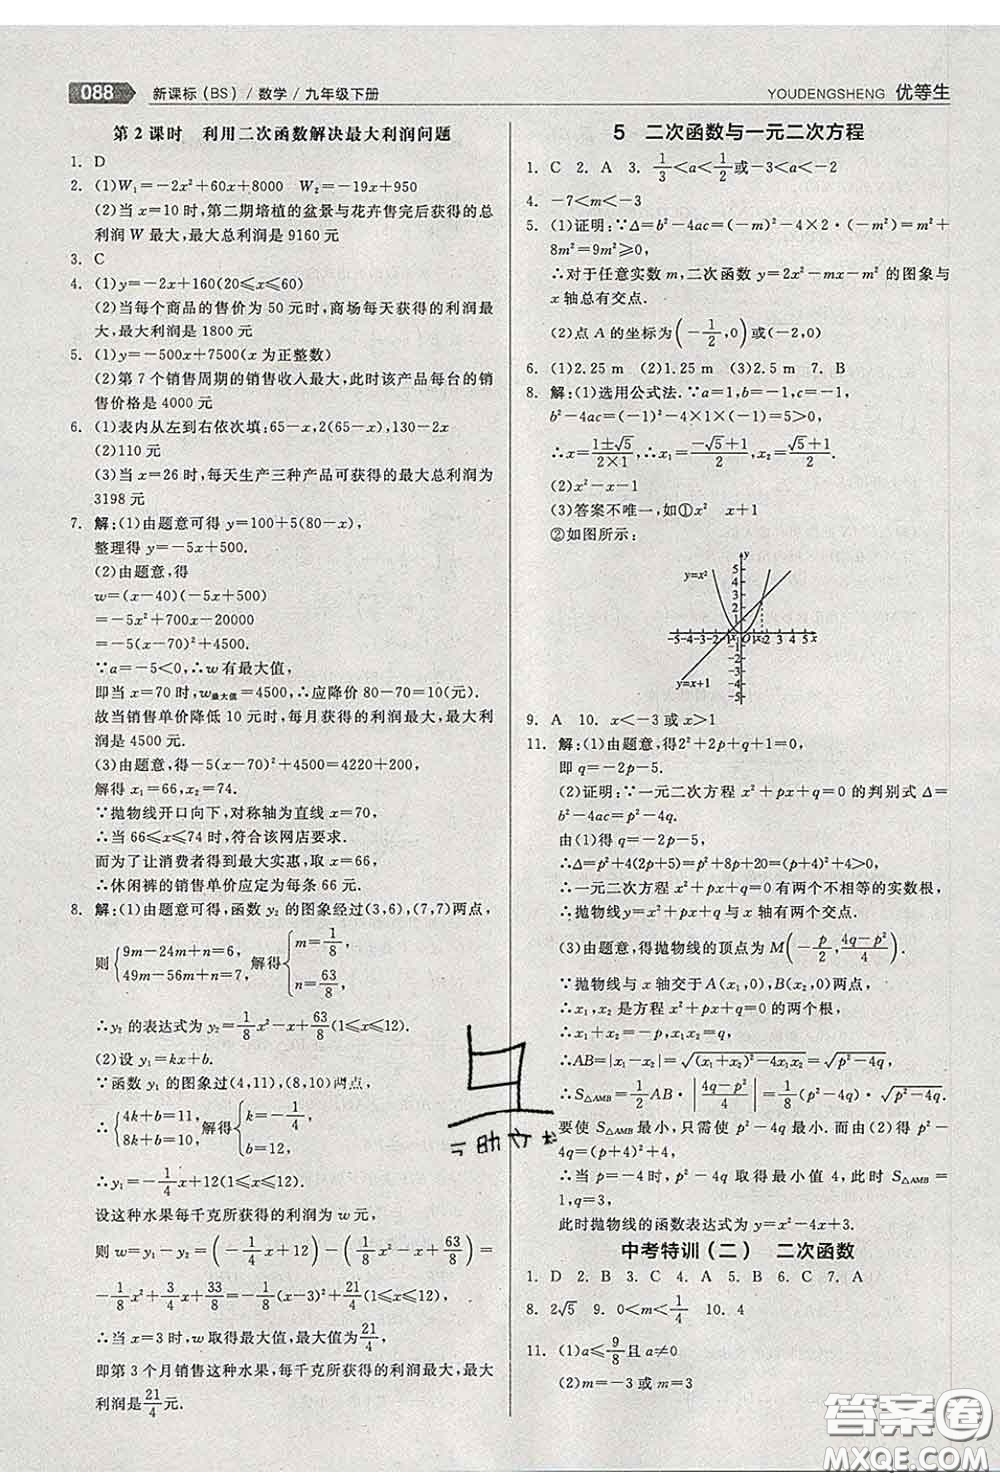 088 新课标(BS)/数学/九年级下册
YOUDENGSHENG 优等生
第2课时 利用二次函数解决最大利润问题
1. D
2. (1)W₁=-2x²+60x+8000 W₂=-19x+950
(2)当x=10时,第二期培植的盆景与花卉售完后获得的总
利润W最大,最大总利润是9160元
3. C
4. (1)y=-2x+160(20≤x≤60)
(2)当每个商品的售价为50元时,商场每天获得的利润最
大,最大利润是1800元
5. (1)y=-500x+7500(x为正整数)
(2)第7个销售周期的销售收入最大,此时该产品每台的销
售价格是4000元
6. (1)表内从左到右依次填:65-x,2(65-x),130-2x
(2)110元
(3)当x=26时,每天生产三种产品可获得的最大总利润为
3198元
7. 解:(1)由题意可得y=100+5(80-x),
整理得y=-5x+500.
(2)由题意,得
w=(x-40)(-5x+500)
=-5x²+700x-20000
=-5(x-70)²+4500.
∵a=-5<0,∴w有最大值,
即当x=70时,w最大值=4500,∴应降价80-70=10(元).
故当销售单价降低10元时,每月获得的利润最大,最大利
润是4500元.
(3)由题意,得-5(x-70)²+4500=4220+200,
解得x₁=66,x₂=74.
∵抛物线开口向下,对称轴为直线x=70,
∴当66≤x≤74时,符合该网店要求.
而为了让消费者得到最大实惠,故取x=66.
∴休闲裤的销售单价应定为每条66元.
8. 解:(1)由题意可得,函数y₂的图象经过(3,6),(7,7)两点,
则{9m-24m+n=6, 49m-56m+n=7, 解得{m=1/8, n=63/8,
∴y₂的表达式为y₂=1/8x²-x+63/8(1≤x≤12).
(2)设y₁=kx+b.
∵函数y₁的图象过(4,11),(8,10)两点,
∴{4k+b=11, 8k+b=10, 解得{k=-1/4, b=12,
∴y₁=-1/4x+12(1≤x≤12).
设这种水果每千克所获得的利润为w元,
则w=y₁-y₂=(-1/4x+12)-(1/8x²-x+63/8)=
-1/8x²+3/4x+33/8=-1/8(x-3)²+21/4(1≤x≤12),
∴当x=3时,w取得最大值,最大值为21/4,
即第3个月销售这种水果,每千克所获得的利润最大,最大利润是
21/4元.
5 二次函数与一元二次方程
1. C 2. A 3. 1/3<a<1/2或-3<a<-2
4. -7<m<-3
5. (1)证明:∵Δ=b²-4ac=(-m)²-4×2·(-m²)=m²+
8m²=9m²≥0,
∴对于任意实数m,二次函数y=2x²-mx-m²的图象与
x轴总有交点.
(2)点A的坐标为(-1/2,0)或(-2,0)
6. (1)2.25 m (2)1.25 m (3)2.5 m 7. B
8. 解:(1)选用公式法.∵a=1,b=-1,c=-1,
b²-4ac=(-1)²-4×1×(-1)=5>0,
∴x=(1±√5)/(2×1),∴x₁=(-√5+1)/2,x₂=(√5+1)/2.
(2)x²-x-1
(3)答案不唯一,如①x² x+1
②如图所示:
y=x²
y
5
4
3
2
1
-5-4-3-2-1 x₁ O 1 x₂ 2 3 4 5 x
-1
-2
-3
-4
-5
y=x+1
9. A 10. x<-3或x>1
11. 解:(1)由题意,得2²+2p+q+1=0,
即q=-2p-5.
(2)证明:∵一元二次方程x²+px+q=0的判别式Δ=
b²-4ac=p²-4q.
由(1)得q=-2p-5,
∴Δ=p²+4(2p+5)=p²+8p+20=(p+4)²+4>0,
∴一元二次方程x²+px+q=0有两个不相等的实数根,
∴抛物线y=x²+px+q与x轴有两个交点.
(3)由题意,得抛物线的顶点为M(-p/2,(4q-p²)/4).
∵抛物线与x轴交于A(x₁,0),B(x₂,0)两点,
∴x₁,x₂是方程x²+px+q=0的两个根,
∴x₁+x₂=-p,x₁x₂=q,
∴AB=|x₁-x₂|=√((x₁+x₂)²-4x₁x₂)=√(p²-4q),
∴S△AMB=1/2AB·|(4q-p²)/4|=1/8(p²-4q)·√(p²-4q).
要使S△AMB最小,只需使p²-4q最小.而由(2)得Δ=p²-
4q=(p+4)²+4,
∴当p=-4时,p²-4q取得最小值4,此时S△AMB=
1,q=3,
此时抛物线的函数表达式为y=x²-4x+3.
中考特训(二) 二次函数
1. D 2. B 3. C 4. A 5. B 6. C 7. A
8. 2√5 9. 0<m<1/4 10. 4
11. (1)a≤9/8且a≠0
(2)m=-3或m=3
答案圈
MXQE.COM